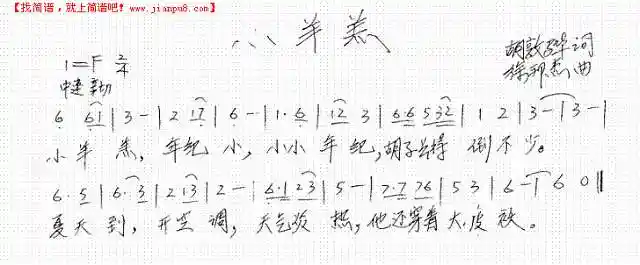 【找简谱，就上简谱吧！www.jianpu8.com】
小小羊羔
1=F 2/4
中速
胡敦骅词
曲
6 61 | 3 - | 2 17 | 6 - | 1· 6 | 12 3 | 66 532 | 1 2 | 3 - | 3 - |
小羊羔，年纪小，小小年纪，胡子长得倒不少。
6· 5 | 6· 3 | 2 13 | 2 - | 6·1 23 | 5 - | 7·7 76 | 5 3 | 6 - | 6 0 ‖
夏天到，开空调，天气炎热，他还穿着大皮袄。